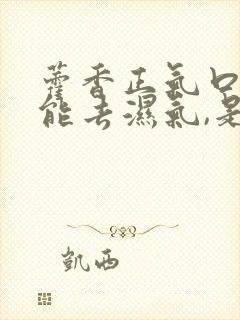 藿香正氣口
能去濕氣,是
凱西